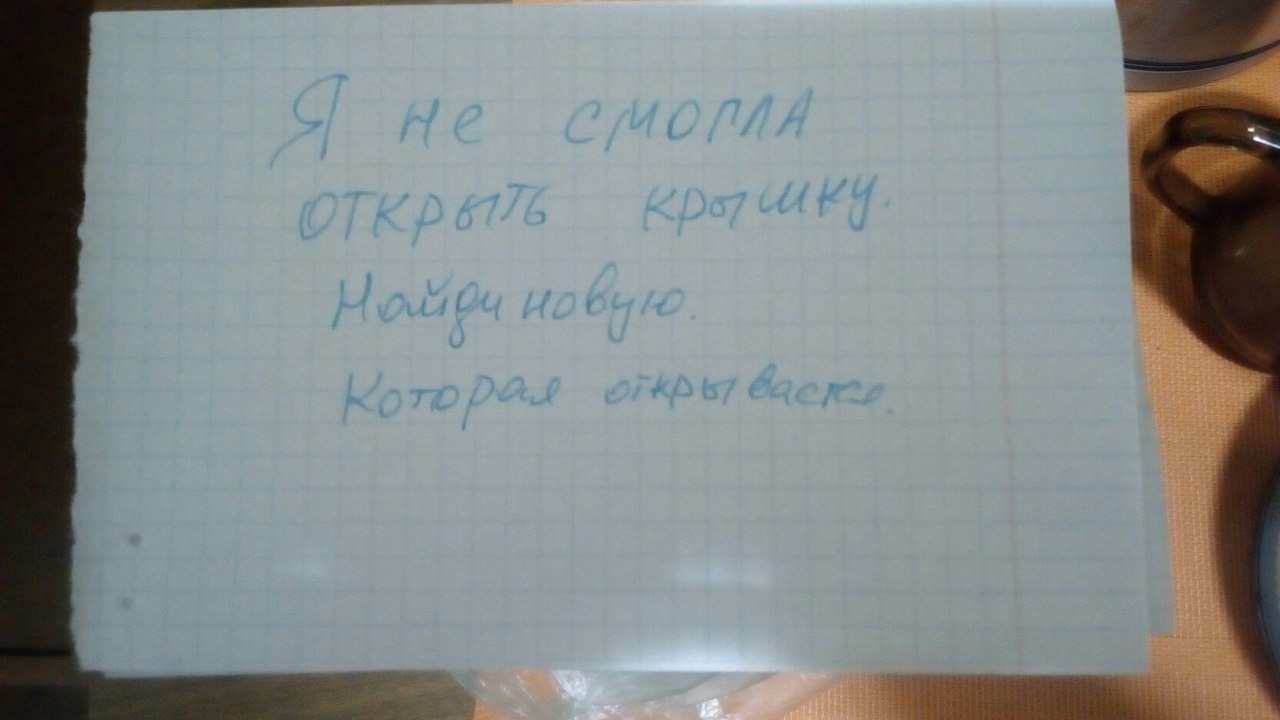 Я не смогла
открыть крышку.
Найди новую.
Которая открывается.